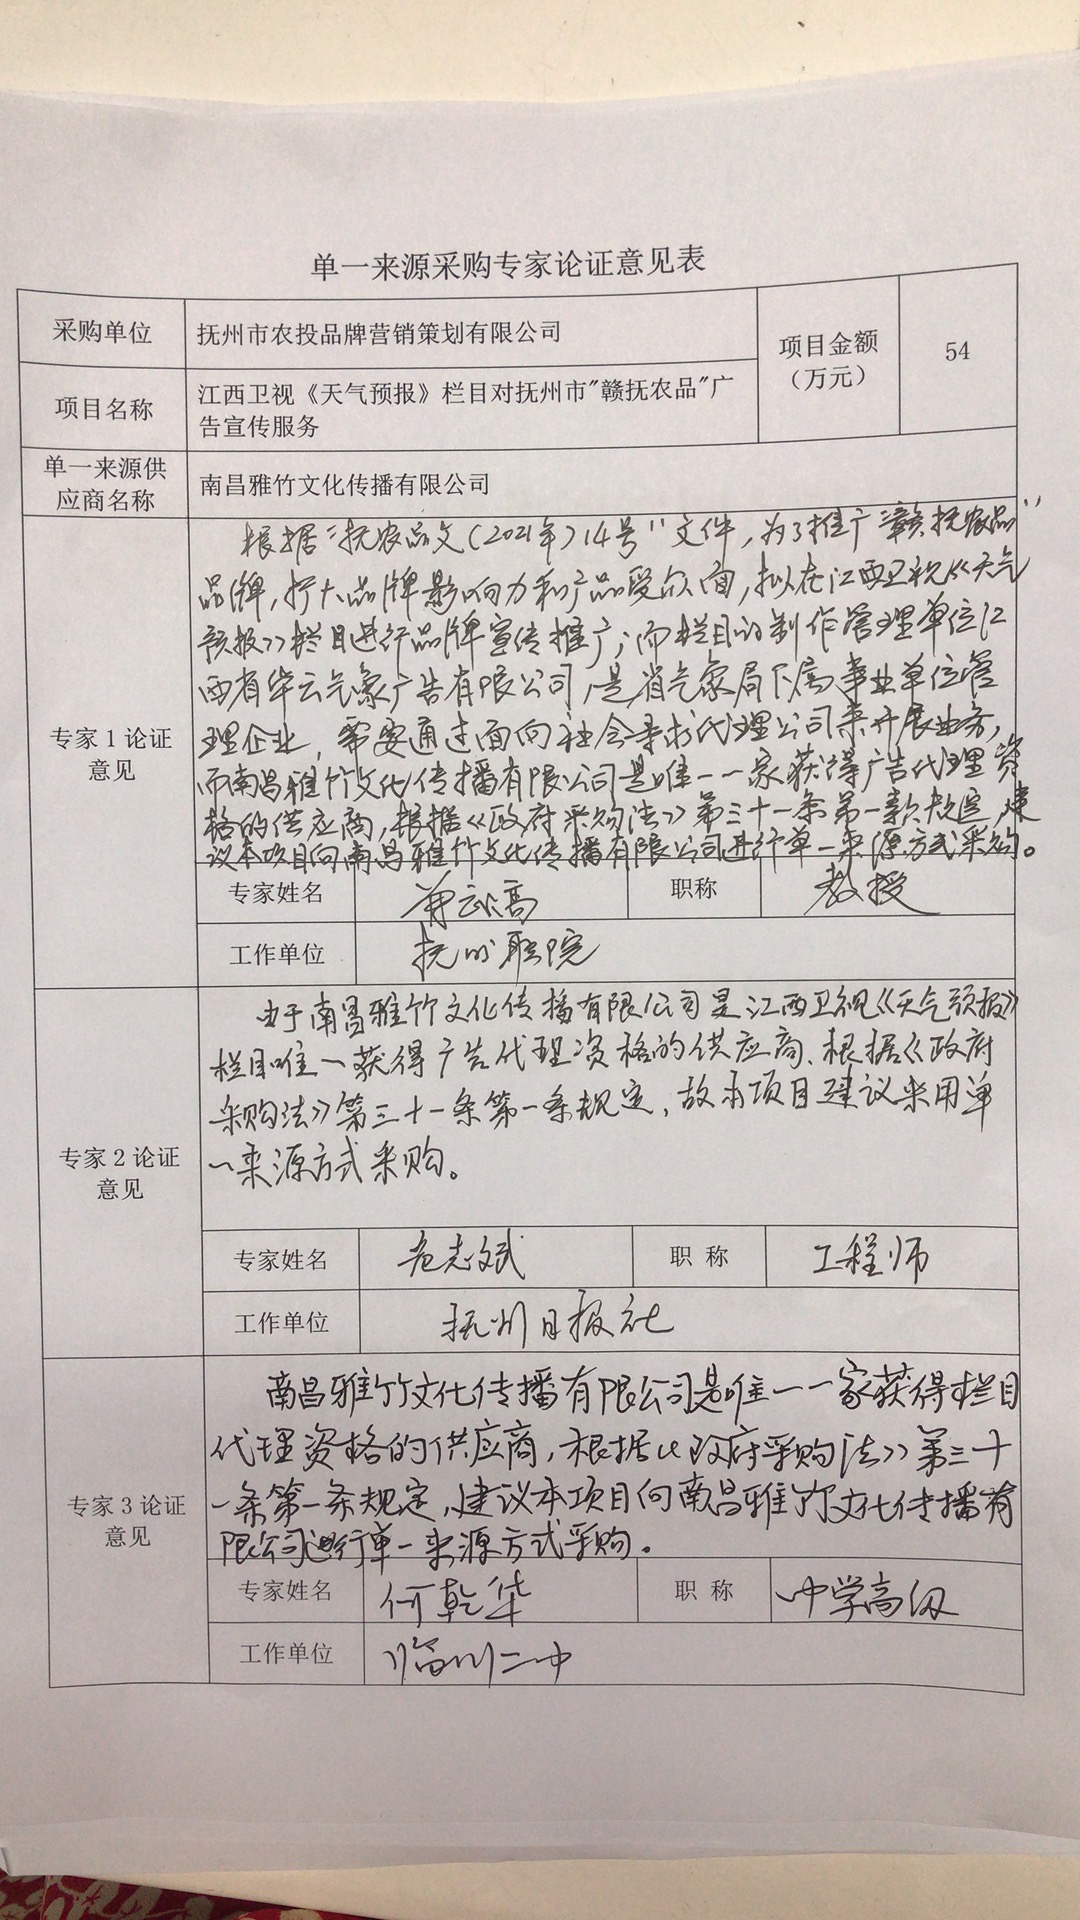 单一来源采购专家论证意见表
采购单位
抚州市农投品牌营销策划有限公司
项目金额
（万元）
54
项目名称
江西卫视《天气预报》栏目对抚州市"赣抚农品"广
告宣传服务
单一来源供
应商名称
南昌雅竹文化传播有限公司
专家1论证
意见
根据"抚农品文(2021年)14号"文件，为了推广"赣抚农品"
品牌，扩大品牌影响力和产品受众面，拟在江西卫视《天气
预报》栏目进行品牌宣传推广；而栏目的制作管理单位江
西省华云气象广告有限公司，是省气象局下属事业单位管
理企业，需要通过面向社会寻求代理公司来开展业务，
而南昌雅竹文化传播有限公司是唯一一家获得广告代理资
格的供应商，根据《政府采购法》第三十一条第一款规定，建
议本项目向南昌雅竹文化传播有限公司进行单一来源方式采购。
专家姓名
高
职称
教授
工作单位
抚州职院
专家2论证
意见
由于南昌雅竹文化传播有限公司是江西卫视《天气预报》
栏目唯一获得广告代理资格的供应商、根据《政府
采购法》第三十一条第一条规定，故本项目建议采用单
一来源方式采购。
专家姓名
危志斌
职 称
工程师
工作单位
抚州日报社
专家3论证
意见
南昌雅竹文化传播有限公司是唯一一家获得栏目
代理资格的供应商，根据《政府采购法》第三十
一条第一条规定，建议本项目向南昌雅竹文化传播有
限公司进行单一来源方式采购。
专家姓名
何乾华
职 称
中学高级
工作单位
临川二中